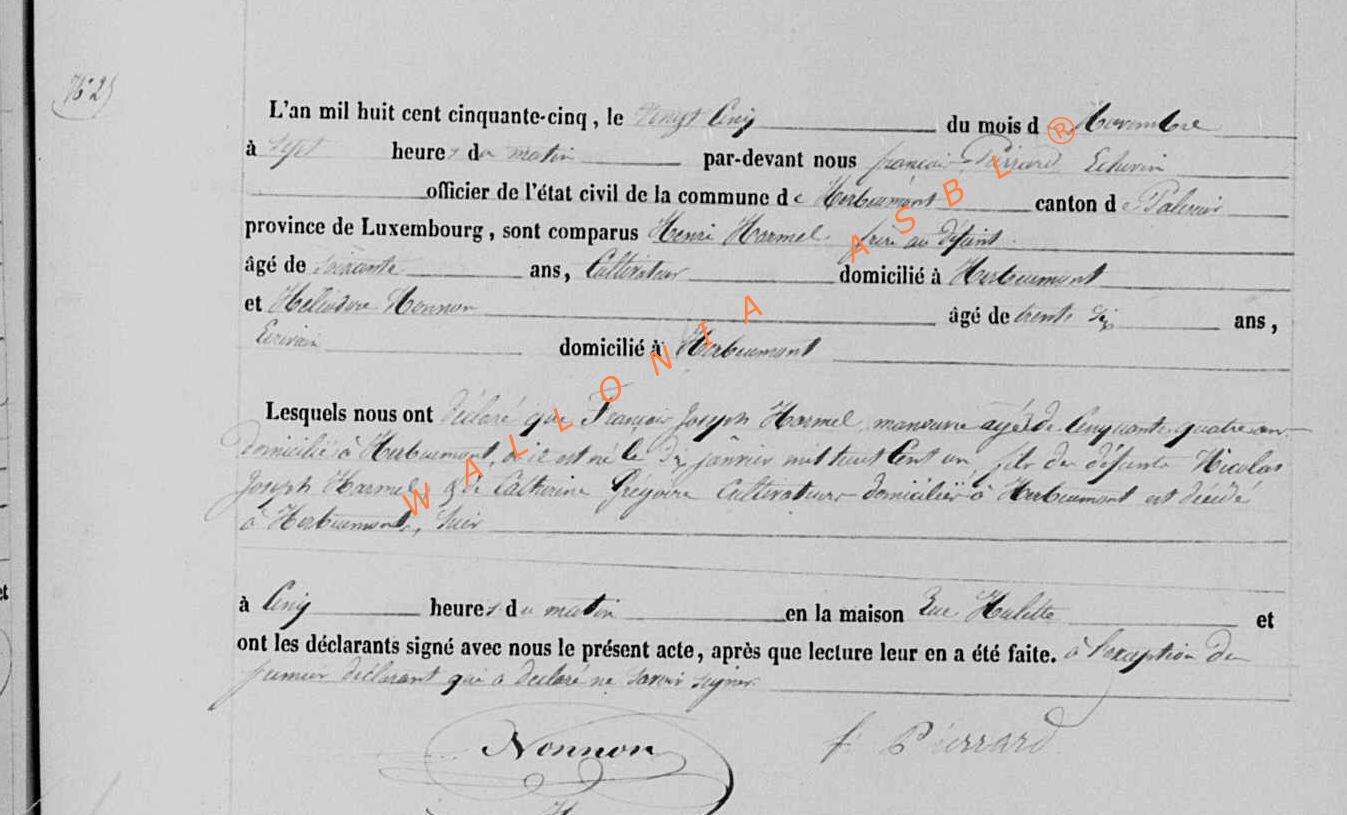 N° 25
L'an mil huit cent cinquante-cinq, le vingt Cinq du mois de Novembre
à sept heures du matin par-devant nous françois Pierrard Echevin
officier de l'état civil de la commune de Herbeumont canton de Paliseul
province de Luxembourg, sont comparus Henri Harmel frère au défunt
âgé de soixante ans, Cultivateur domicilié à Herbeumont
et Héliodore Nonnon âgé de trente six ans,
Ecrivain domicilié à Herbeumont
Lesquels nous ont déclaré que François Joseph Harmel, manœuvre agé de Cinquante quatre ans
domicilié à Herbeumont, où il est né le janvier mil huit Cent un, fils des défunts Nicolas
Joseph Harmel & de Catherine Grégoire Cultivateurs domiciliés à Herbeumont est décédé
à Herbeumont, hier
à Cinq heures du matin en la maison Rue Hulette et
ont les déclarants signé avec nous le présent acte, après que lecture leur en a été faite. à l'exception du
premier déclarant qui a déclaré ne savoir signer.
Nonnon f. Pierrard
WALLONIA ASBL ®